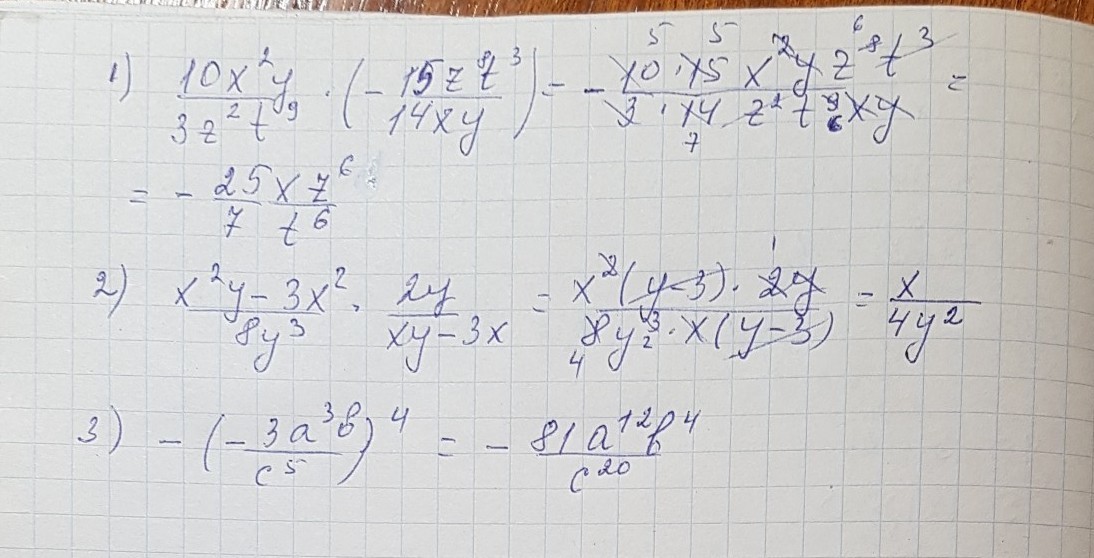 1) 10x²y / 3z²t⁹ · (- 15z⁸t³ / 14xy) = - 10·15 x²y z⁸ t³ / 3·14 z²t⁹xy 5 5 6 7 6 =
= - 25xz⁶ / 7t⁶
2) x²y - 3x² / 8y³ · 2y / xy - 3x = x²(y-3)·2y / 8y³·x(y-3) 1 4 2 = x / 4y²
3) - (- 3a³b / c⁵)⁴ = - 81a¹²b⁴ / c²⁰